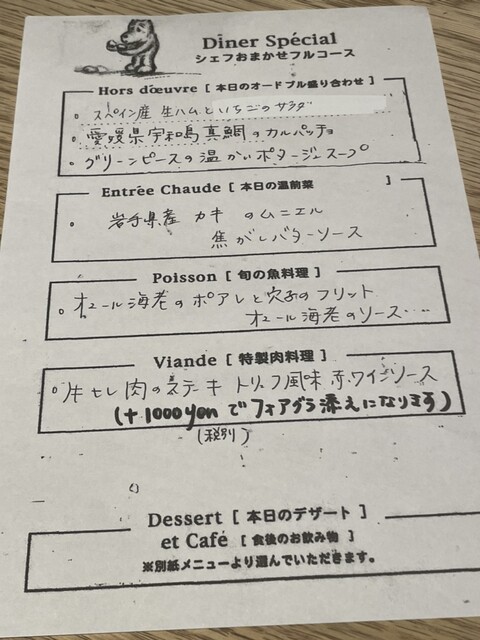 Diner Spécial
シェフおまかせフルコース
Hors dœuvre [ 本日のオードブル盛り合わせ ]
・スペイン産 生ハムといちごのサラダ
・愛媛県宇和島真鯛のカルパッチョ
・グリーンピースの温かいポタージュスープ
Entrée Chaude [ 本日の温前菜 ]
・岩手県産 カキ のムニエル
焦がしバターソース
Poisson [ 旬の魚料理 ]
・オマール海老のポアレと穴子のフリット
オマール海老のソース・・・・
Viande [ 特製肉料理 ]
・牛ヒレ肉のステーキ トリュフ風味 赤ワインソース
(+1000yenでフォアグラ添えになります)
(税別)
Dessert [ 本日のデザート ]
et Café [ 食後のお飲み物 ]
※別紙メニューより選んでいただきます。